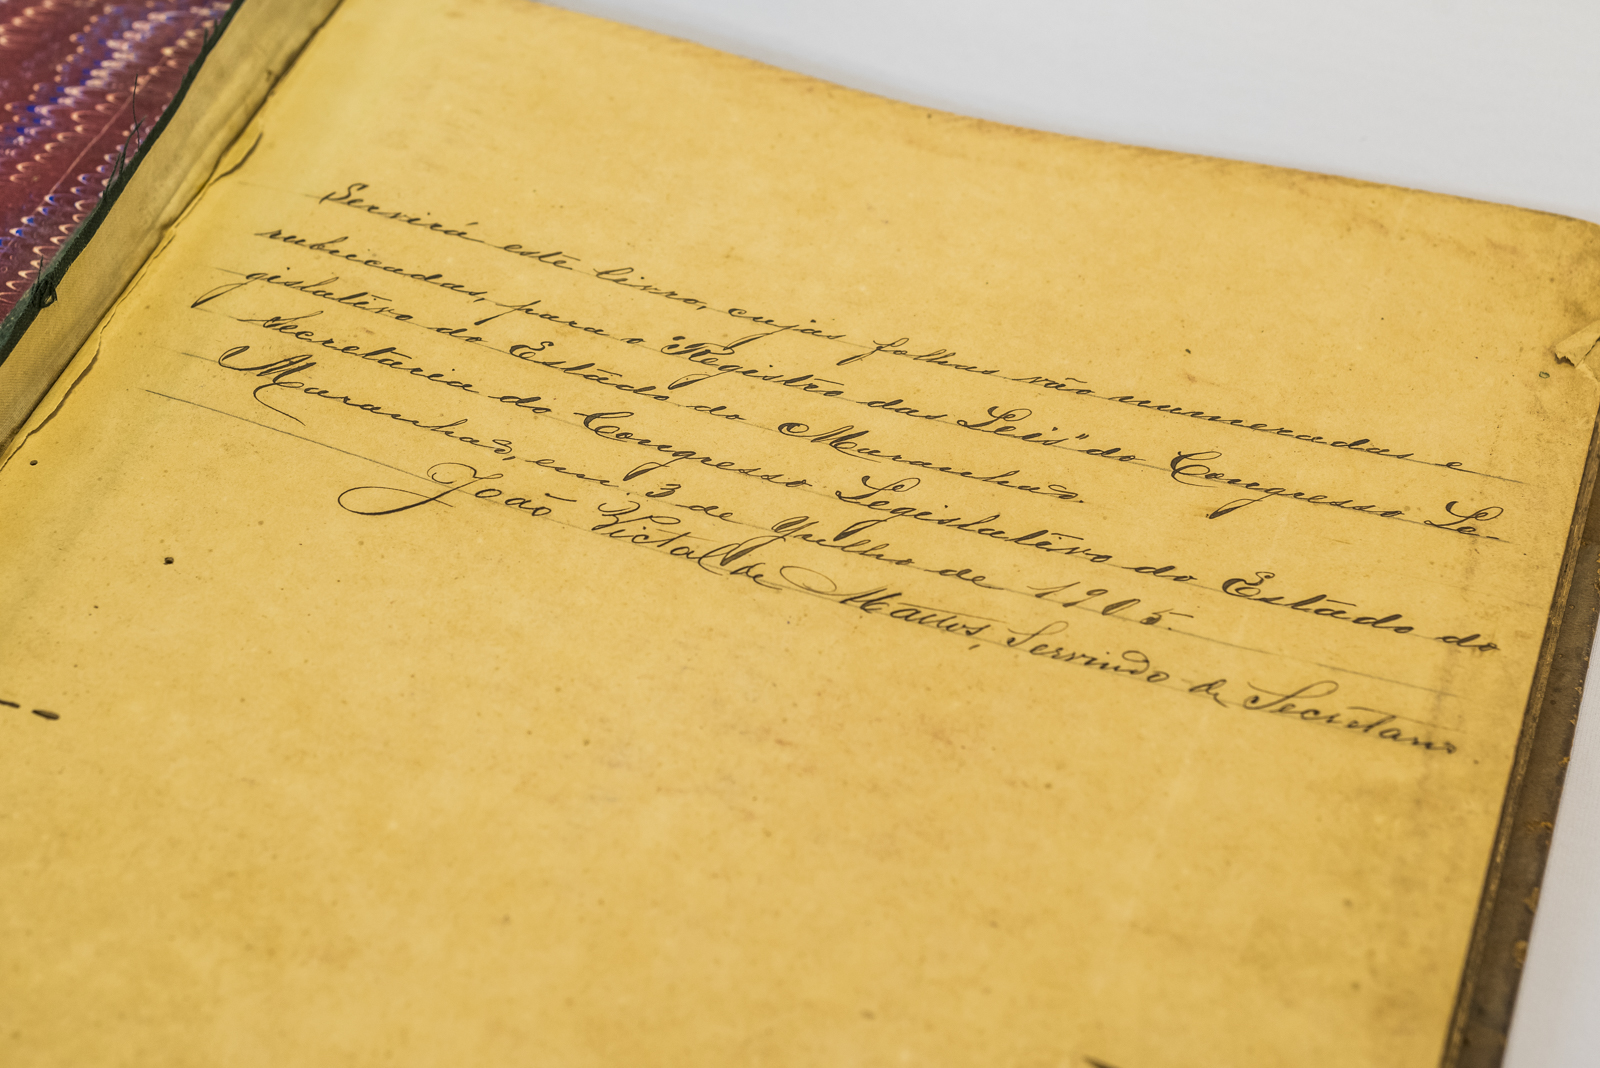 Servirá este livro, cujas folhas vão numeradas e
rubricadas, para o "Registro das Leis" do Congresso Le-
gislativo do Estado do Maranhão.
Secretaria do Congresso Legislativo do Estado do
Maranhão, em 3 de Julho de 1905.
João Victal de Mattos, Servindo de Secretario